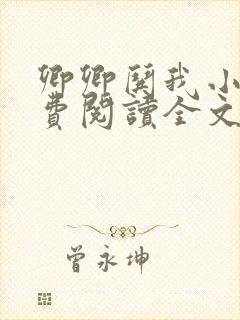 卿卿闋我.小
費閱讀全文
曾永坤